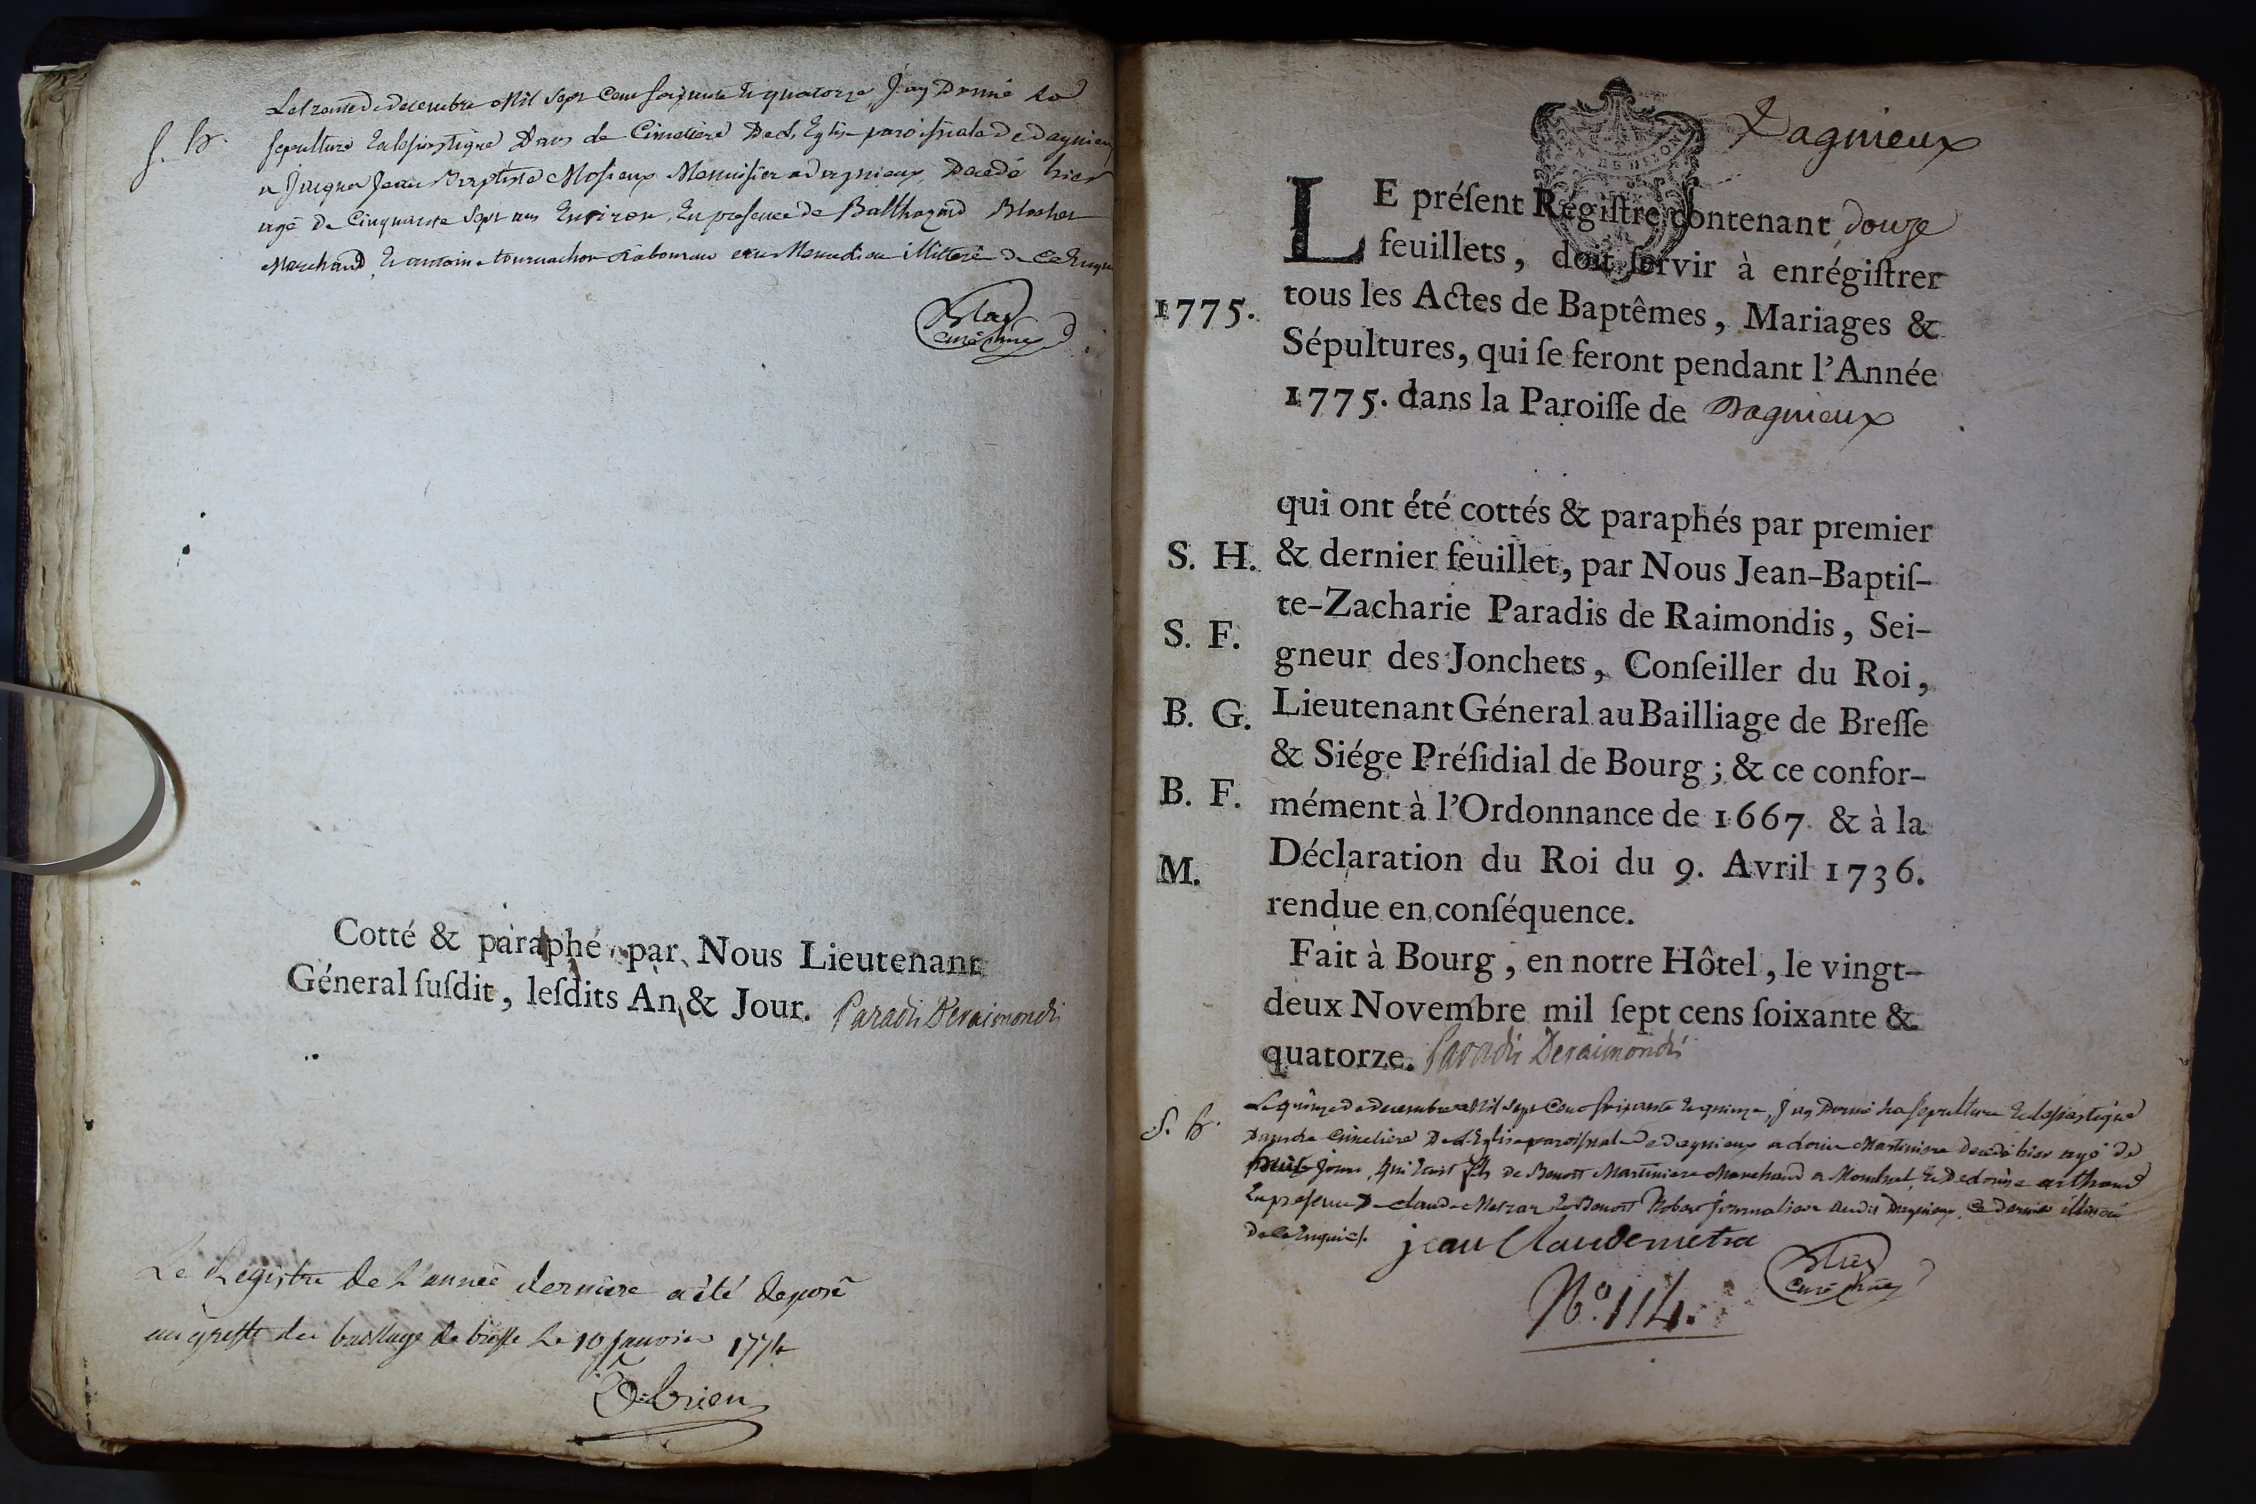 S. h.
Le trente decembre Mil Sept Cent soixante et quatorze, J'ay Donné la
sepulture Eclesiastique Dans le Cimetiere De l'Eglise paroissiale De Dagnieux
a Jacques Jean Baptiste Mosieux Menuisier a dagnieux, Decedé hier
agé de Cinquante Sept ans Environ, En presence de Balthazard
Marchand, Et antoine tournachon Laboureur illitteré De Ce Enquis
curé
Cotté & paraphé par Nous Lieutenant
Géneral ſuſdit, leſdits An & Jour. Paradis Deraimondis
Le Registre de L'année derniere a été deposé
au greffe du bailliage de bresse Le 10 janvier 1774
Debrien
Dagnieux
LE préſent Régiſtre contenant douze
feuillets, doit ſervir à enrégiſtrer
tous les Actes de Baptêmes, Mariages &
1775.
Sépultures, qui ſe feront pendant l'Année
1775. dans la Paroiſſe de Dagnieux
qui ont été cottés & paraphés par premier
S. H.
& dernier feuillet, par Nous Jean-Baptiſ-
te-Zacharie Paradis de Raimondis, Sei-
S. F.
gneur des Jonchets, Conſeiller du Roi,
B. G.
Lieutenant Géneral au Bailliage de Breſſe
& Siége Préſidial de Bourg ; & ce confor-
B. F.
mément à l'Ordonnance de 1667. & à la
M.
Déclaration du Roi du 9. Avril 1736.
rendue en conſéquence.
Fait à Bourg, en notre Hôtel, le vingt-
deux Novembre mil ſept cens ſoixante &
quatorze. Paradis Deraimondis
S. h.
Le quinze decembre Mil Sept Cent soixante Et quinze, J'ay Donné La sepulture Eclesiastique
Dans le Cimetiere De l'Eglise paroissiale De dagnieux a Martiniere Decedé hier agé de
jours, qui Etoit fils de Benoit Martiniere Marchand a Monluel, Et De arthaud
En presence De claude Metrar Et Benoit Robat journaliers audit Dagnieux, Ce Dernier illitteré
De Ce Enquis
jean Claude metra
curé
N.º 114.